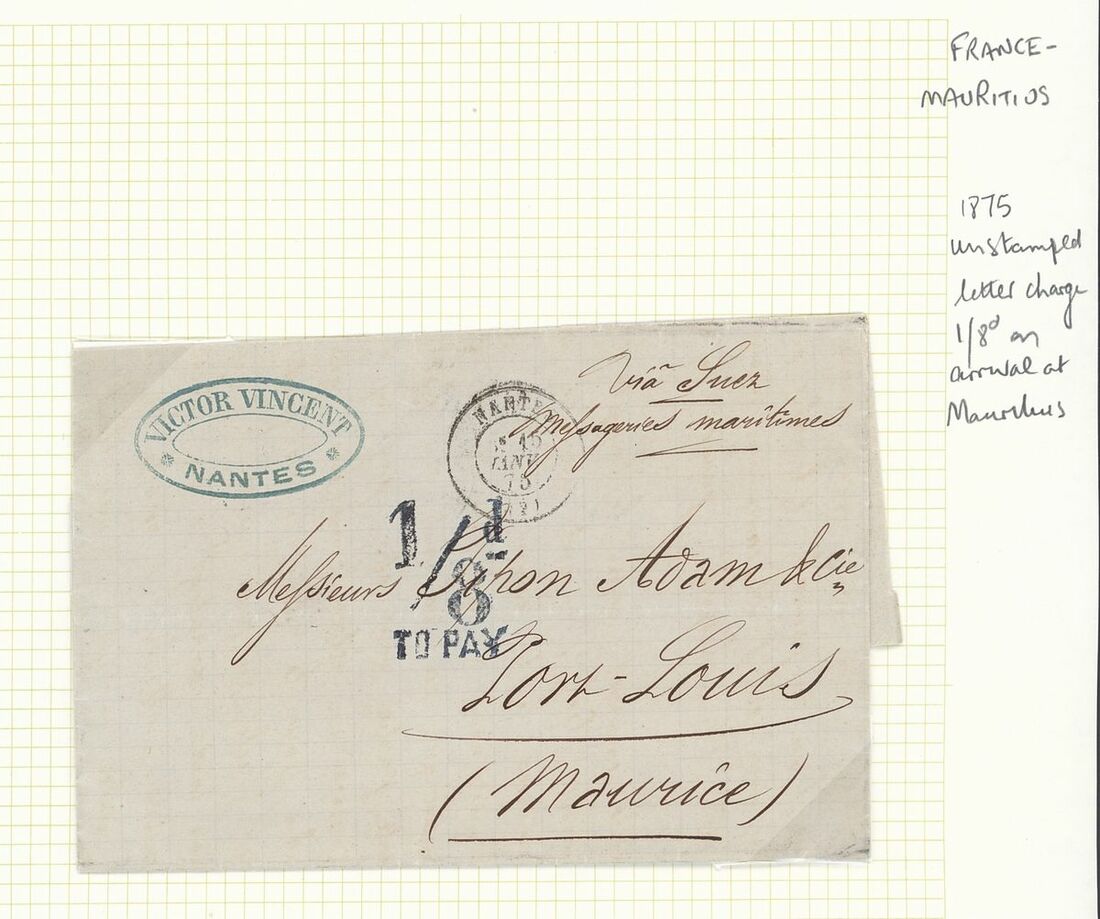 FRANCE -
MAURITIUS
1875
unstamped
letter charge
1/8d on
arrival at
Mauritius
VICTOR VINCENT
NANTES
NANTES
15
JANV
75
Viâ Suez
Messageries maritimes
1/8d
TO PAY
Messieurs Adam & Cie
Port-Louis
(Maurice)